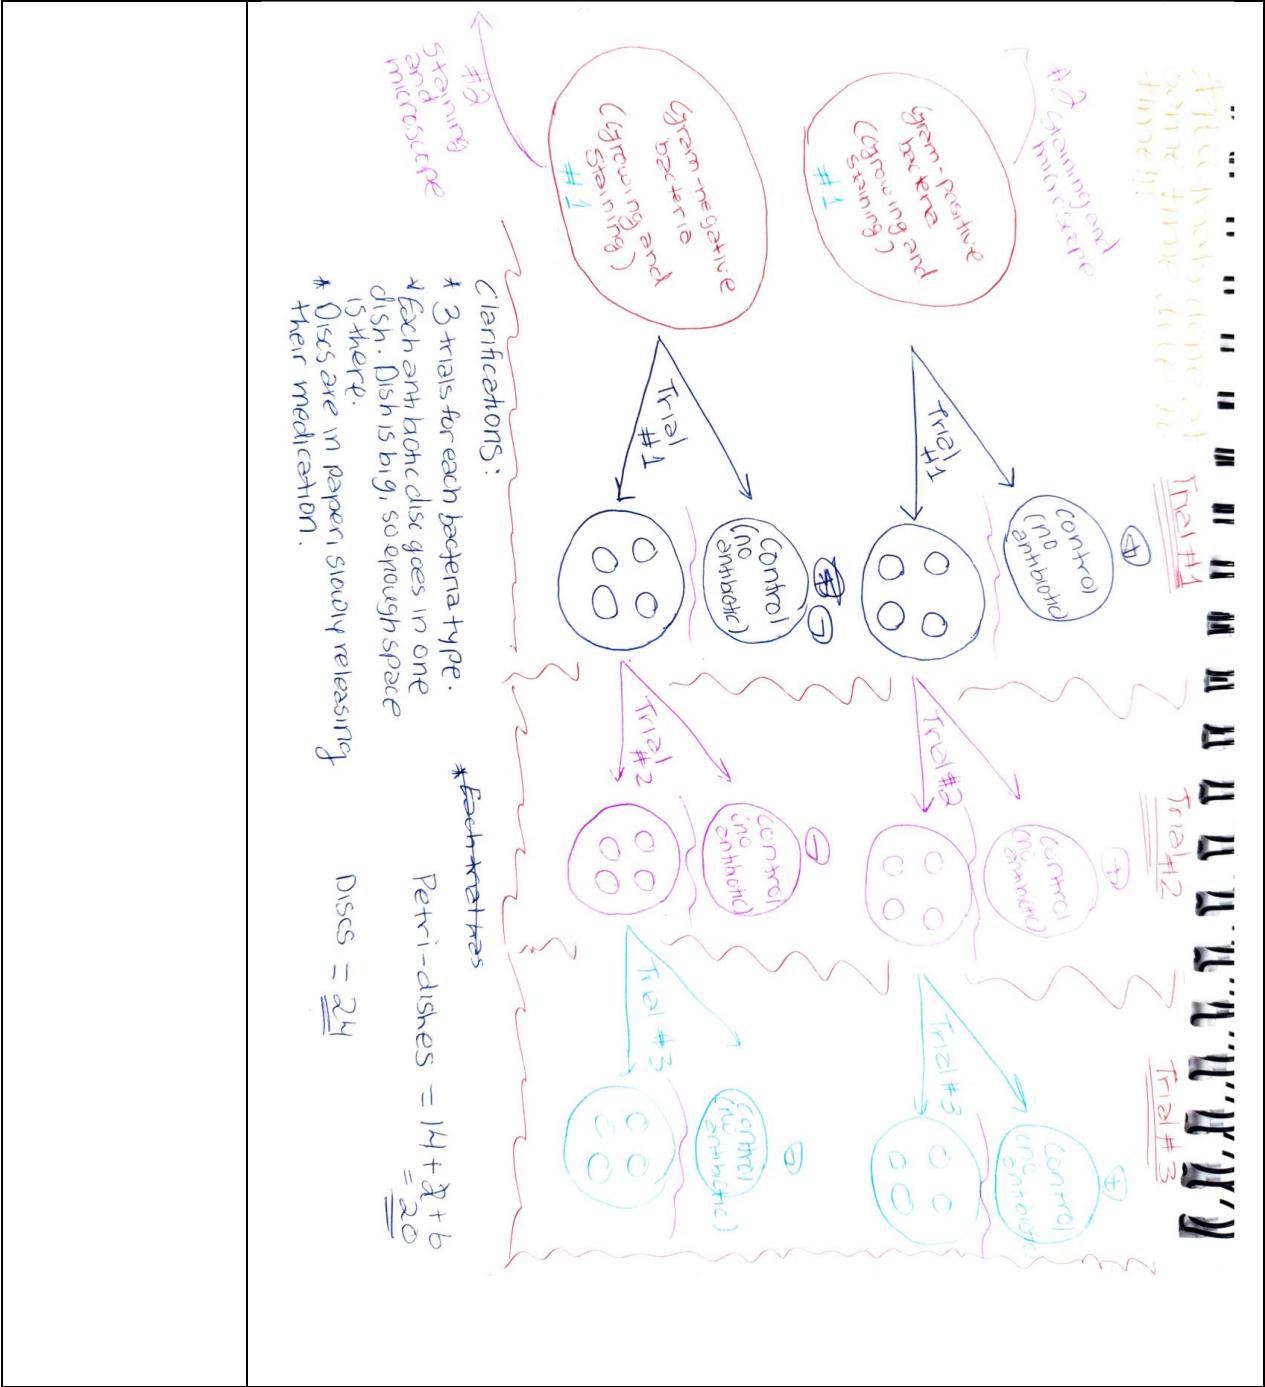 Trial #1
Trial #2
Trial #3
#2 staining and
microscope
Gram-positive
bacteria
(growing and
staining)
#1
Trial
#1
+
Control
(no
antibiotic)
Trial #2
+
Control
(no
antibiotic)
Trial #3
+
Control
(no
antibiotic)
Gram-negative
bacteria
(growing and
staining)
#1
#2
staining
and
microscope
Trial
#1
-
Control
(no
antibiotic)
Trial
#2
-
Control
(no
antibiotic)
Trial #3
-
Control
(no
antibiotic)
Clarifications:
* 3 trials for each bacteria type.
* Each antibiotic disc goes in one
dish. Dish is big, so enough space
is there.
* Discs are in paper; slowly releasing
their medication.
* Each trial has
Petri-dishes = 14 + 2 + 6
= 20
Discs = 24